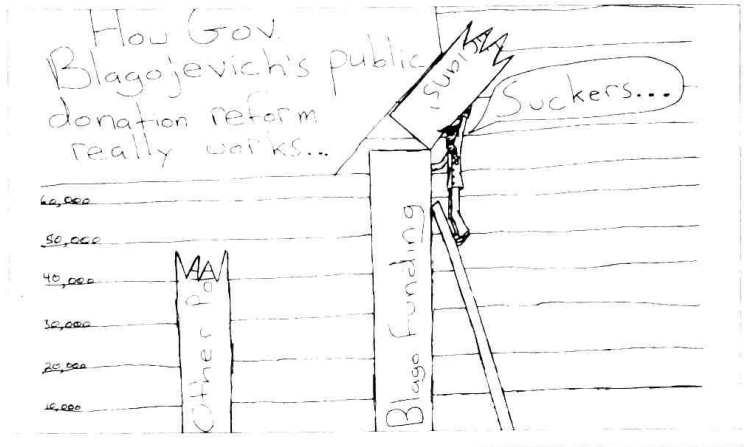 How Gov.
Blagojevich's public
donation reform
really works...
Suckers...
60,000
50,000
40,000
30,000
20,000
10,000
Other Po
Blago Funding